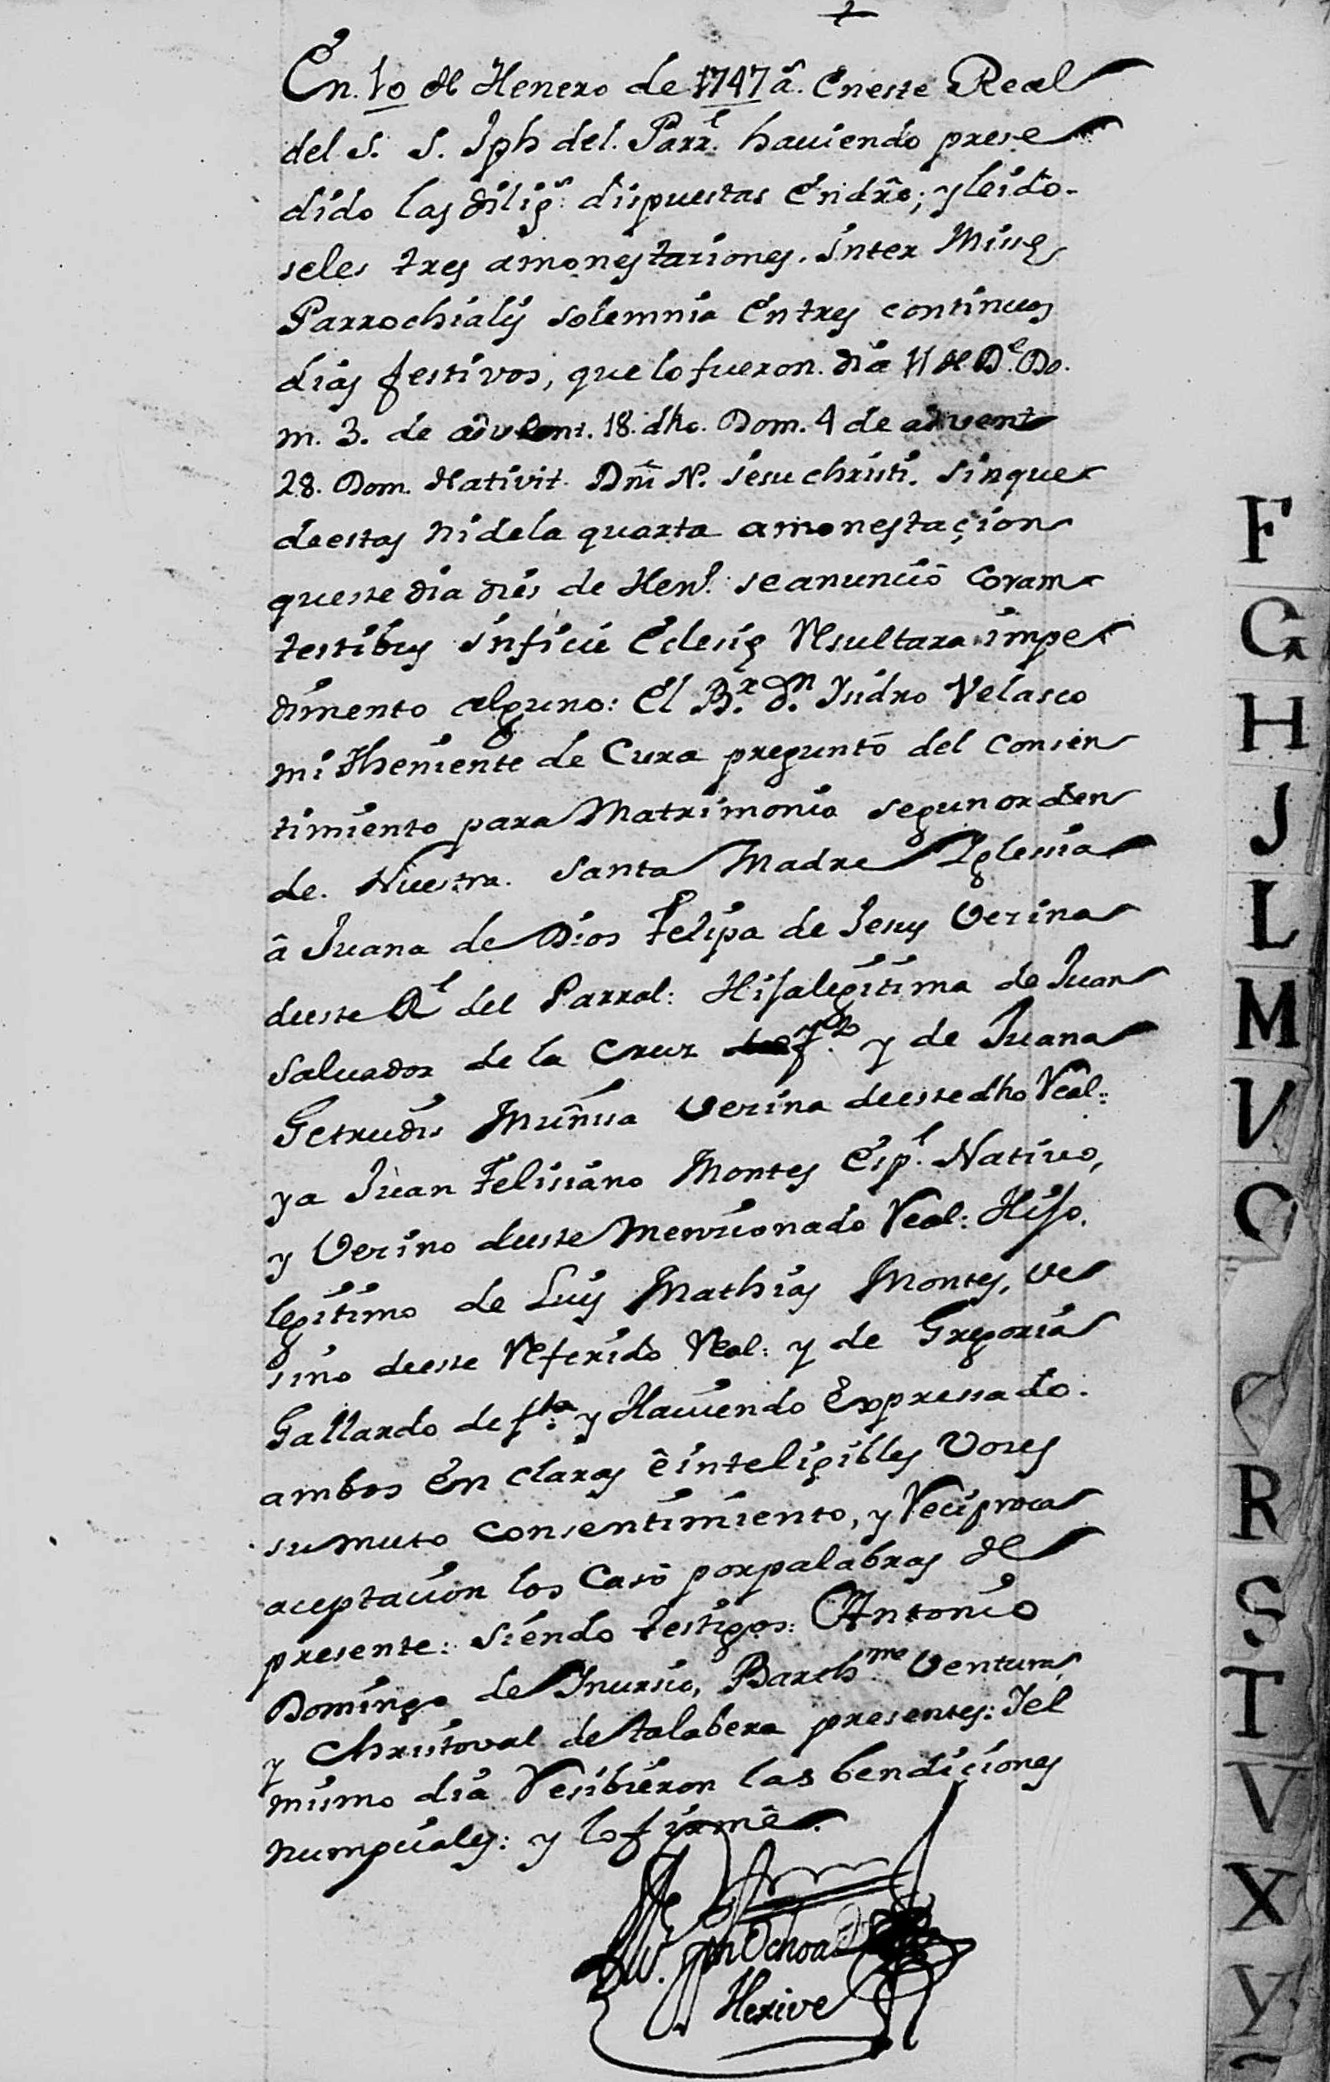 En 10 de Henero de 1747 as. Eneste Real
del S. S. Jph del Parrl. haviendo prese
dido las diligs. dispuestas Endro; y leido-
seles tres amonestaziones. inter Missę
Parrochialis solemnia Entres continuos
dias festivos, que lo fueron dia 11 de De. Do.
m. 3. de advent. 18. dho. Dom. 4 de advent
28. Dom. Nativit. Dni N. Jesu christi. sinque
deestas nidela quarta amonestaçion
queste dia dies de Henº. seanunció Coram
testibus infacie Eclesię Resultara impe
dimento alguno: El Br. Dn. Isidro Velasco
mi Theniente de Cura preguntó del Consen
timiento para Matrimonio segun orden
de Nuestra Santa Madre Iglessia
â Juana de Dios Felipa de Jesus Vezina
deeste Rl del Parral: Hijalegitima de Juan
Salvador de la Cruz y de Juana
Getrudis Vezina deestedho Real:
ya Juan Felisiano Montes Espl. Nativo,
y Vezino deeste Menzionado Real: Hijo.
legitimo de Luis Mathias Montes, ve
sino deeste Referido Real: y de Gregoria
Gallardo defta. y Haviendo Expressado.
ambos En claras êinteligibles Vozes
sumuto Consentimiento, y Reciproca
aceptacion los Casó porpalabras de
presente: siendo testigos: Antonio
Domingo de Barthme Ventura
y Christoval de talabera presentes: Yel
mismo dia Resibieron las bendiçiones
numpciales: y lofirmê.
Jph Ochoa
Herive
F
G
H
J
L
M
V
O
R
S
T
V
X
Y